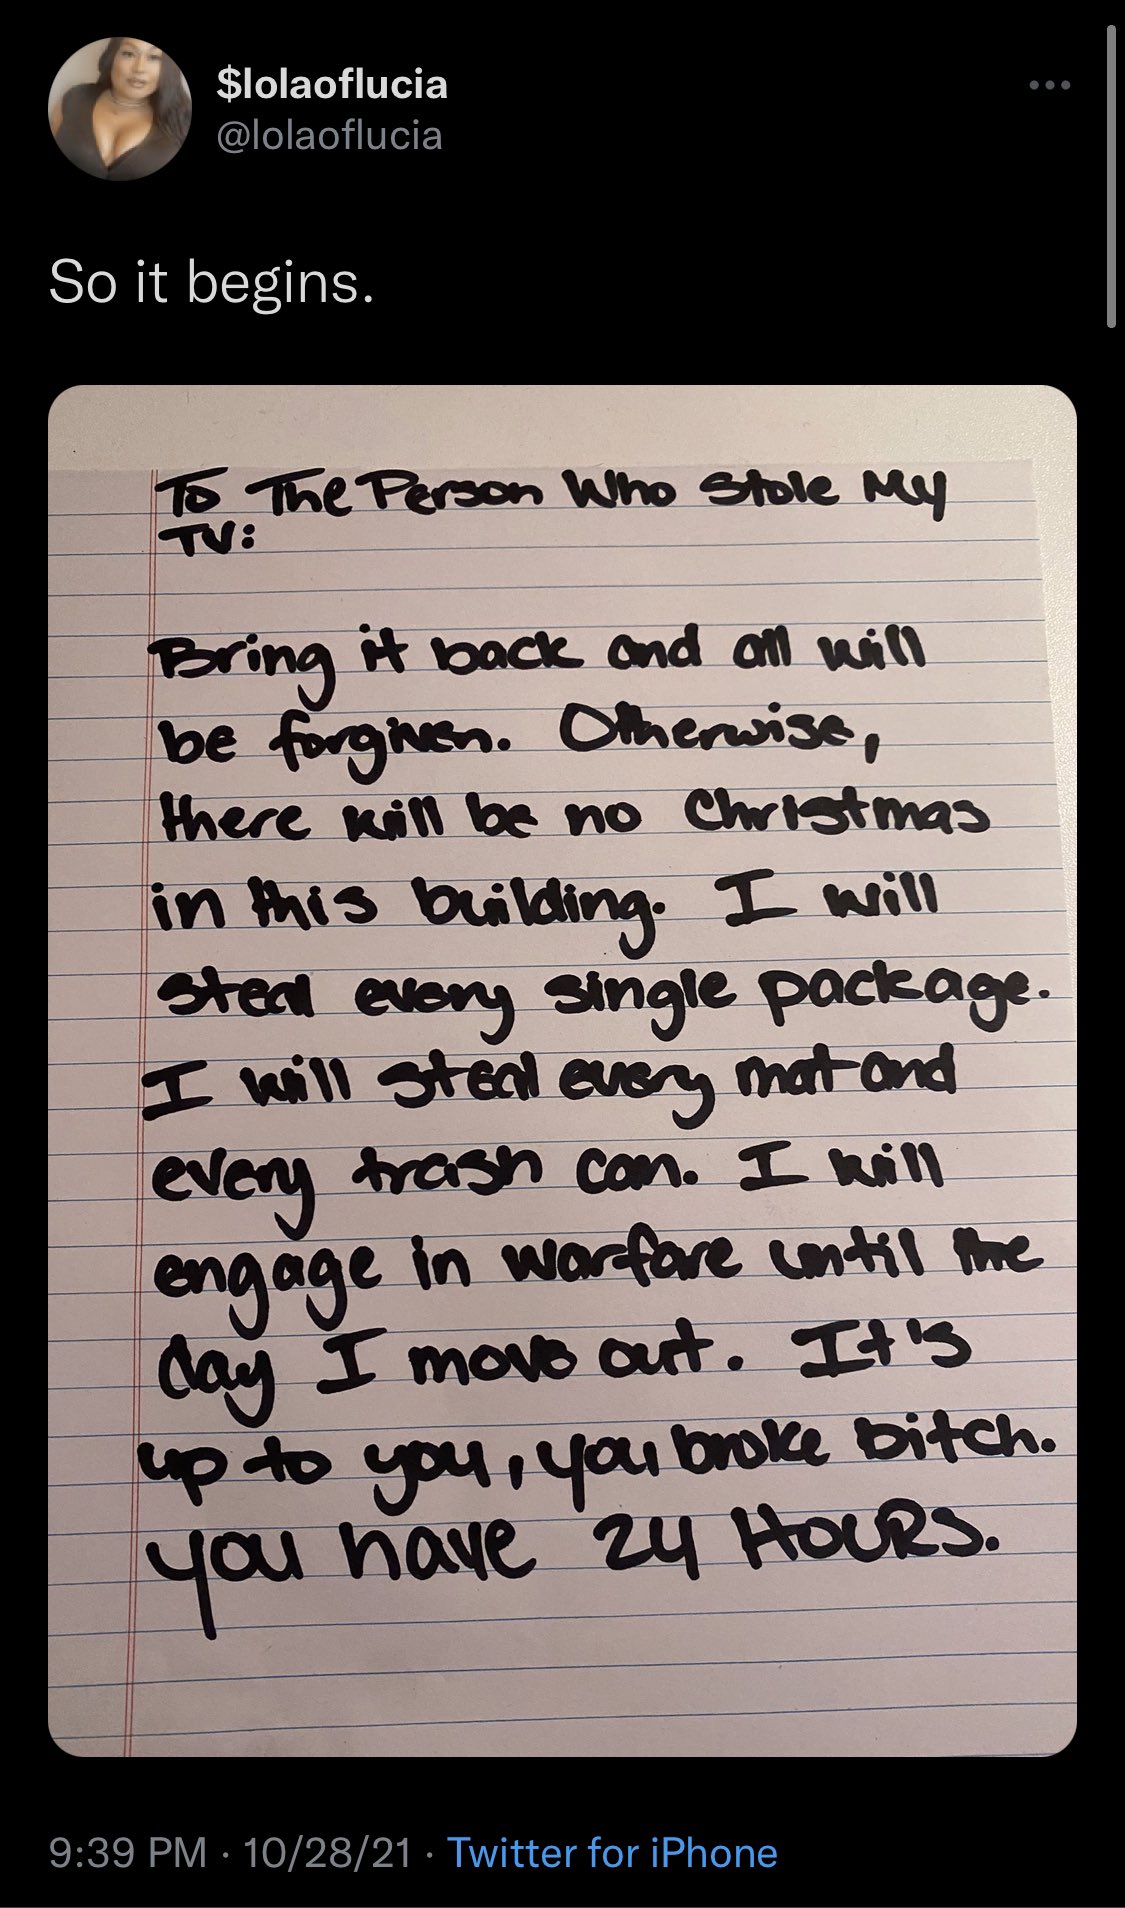 $lolaoflucia
@lolaoflucia
So it begins.
To The Person Who Stole My
TV:
Bring it back and all will
be forgiven. Otherwise,
there will be no Christmas
in this building. I will
steal every single package.
I will steal every mat and
every trash can. I will
engage in warfare until the
day I move out. It's
up to you, you broke bitch.
you have 24 HOURS.
9:39 PM · 10/28/21 · Twitter for iPhone